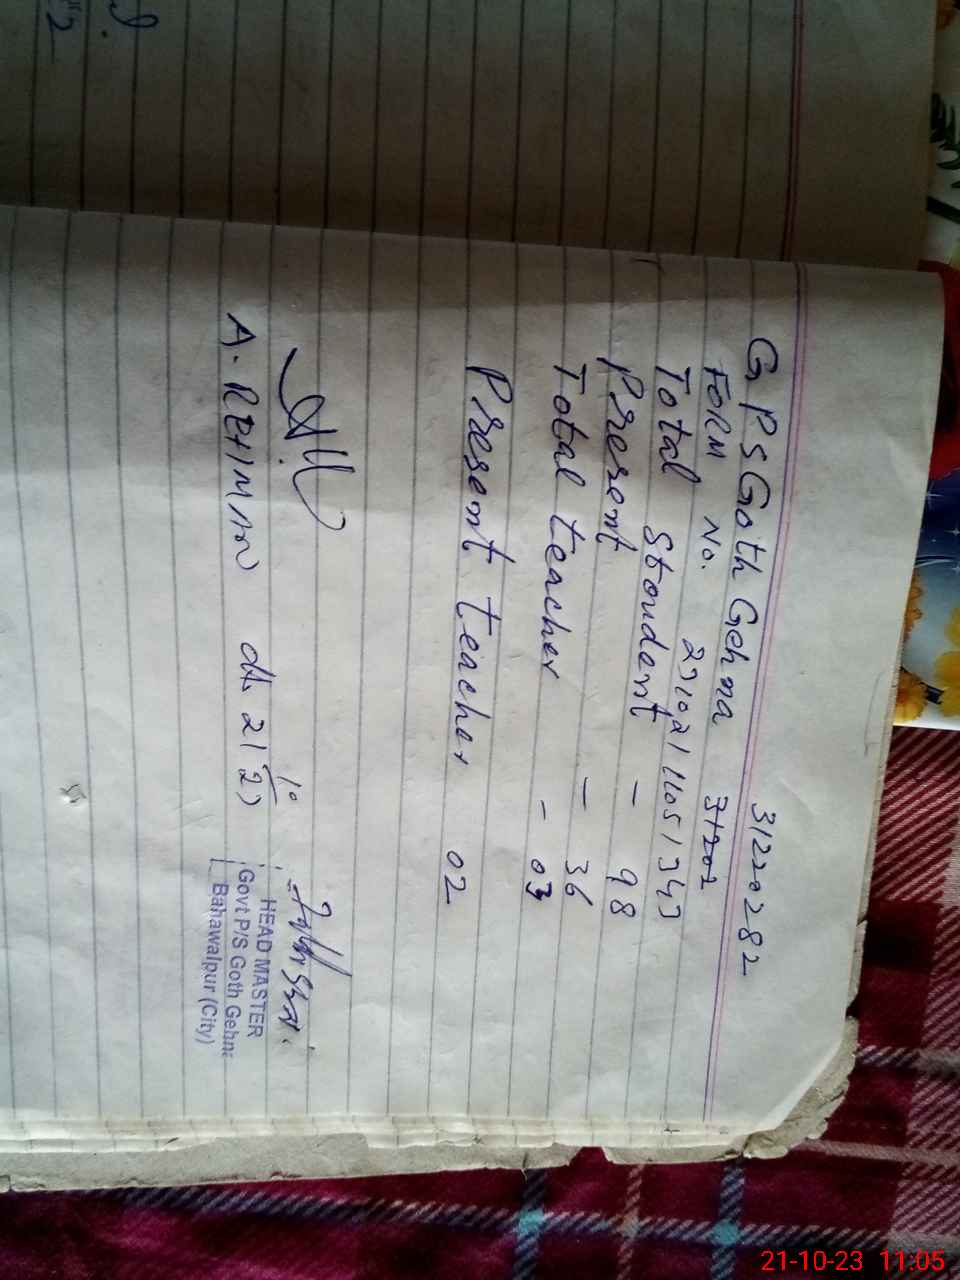 G P S Goth Gehna 31220282
FORM No. 31202
Total Stoudent – 98
Present – 36
Total teacher – 03
Present teacher 02
A. REHMAN dt 21
HEAD MASTER
Govt P/S Goth Gehna
Bahawalpur (City)
21-10-23 11:05